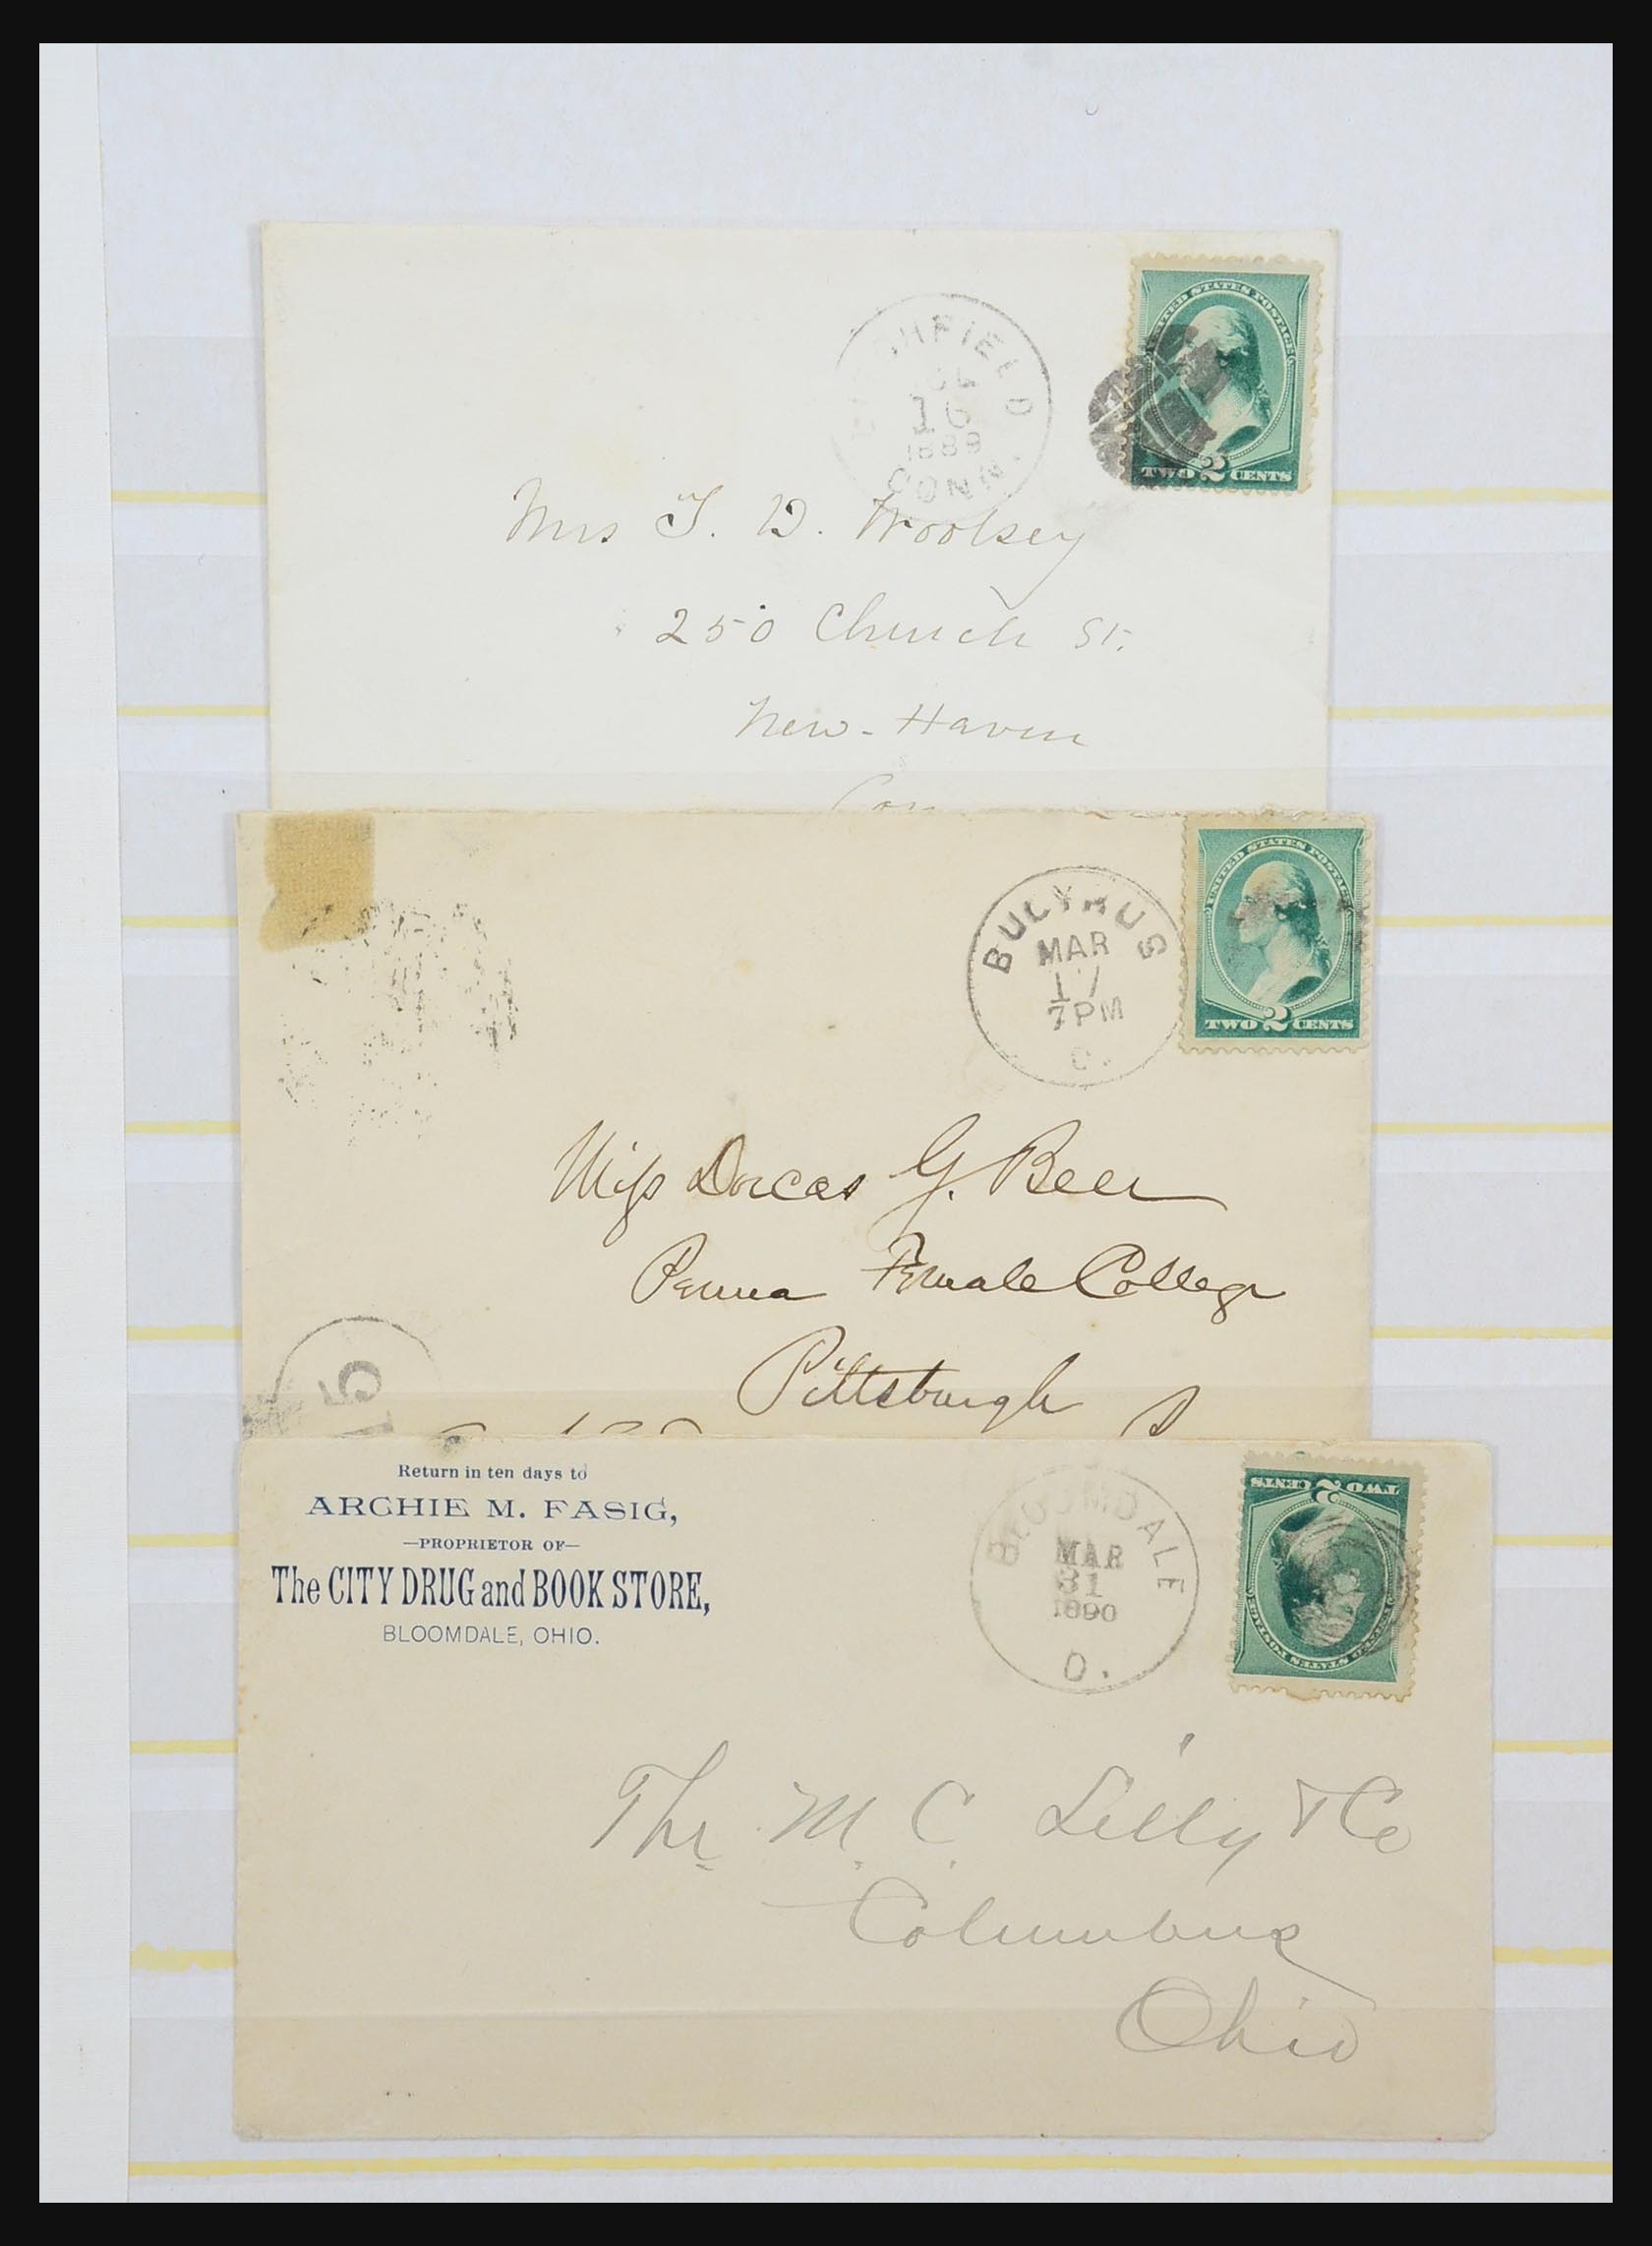 UNITED STATES POSTAGE
TWO 2 CENTS
HFIELD
16
1889
CONN.
Mrs T. D. Woolsey
250 Church St.
New-Haven
Con
UNITED STATES POSTAGE
TWO 2 CENTS
BUCYRUS
MAR
17
7PM
O.
Miss Dorcas G. Beer
Penna Female College
Pittsburgh
5
Return in ten days to
ARCHIE M. FASIG,
—PROPRIETOR OF—
The CITY DRUG and BOOK STORE,
BLOOMDALE, OHIO.
BLOOMDALE
MAR
31
1890
O.
TWO 2 CENTS
UNITED STATES POSTAGE
The M. C. Lilly & Co
Columbus
Ohio